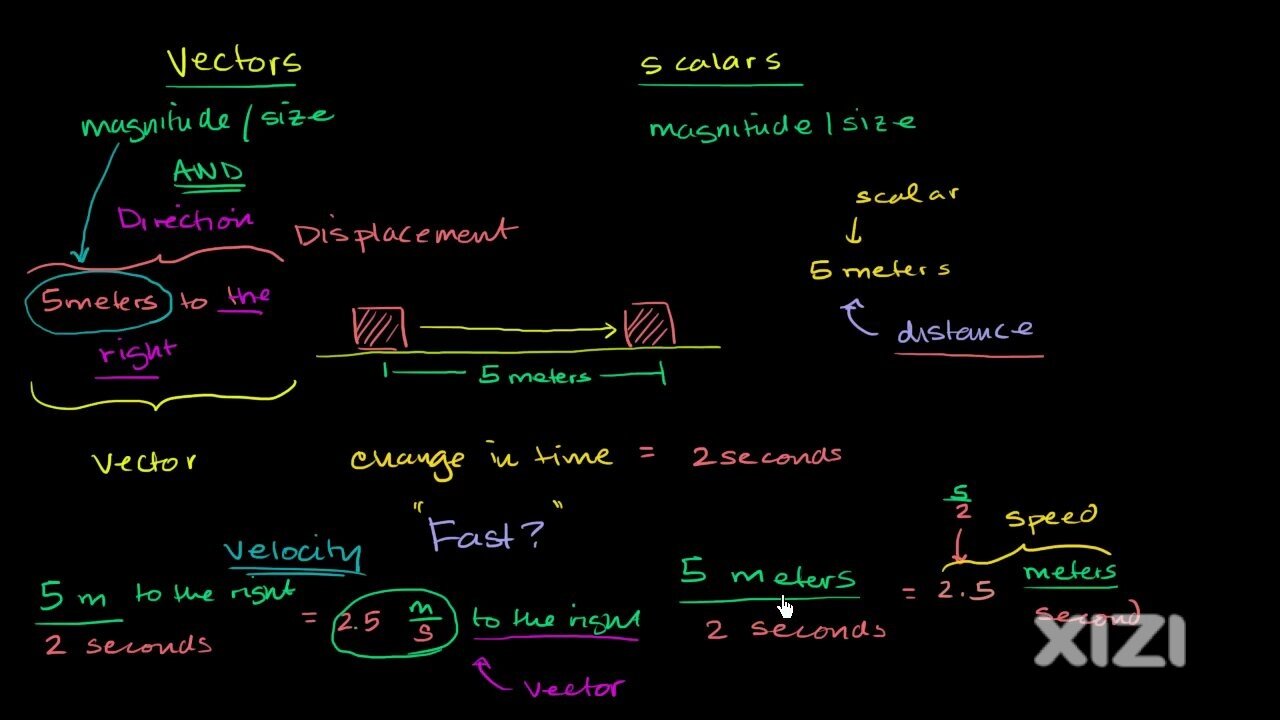 Vectors
magnitude / size
AND
Direction
Displacement
5meters to the
right
vector
scalars
magnitude / size
scalar
5 meters
distance
5 meters
change in time = 2 seconds
"Fast?"
velocity
5 m to the right
2 seconds
= 2.5 m
s
to the right
vector
5
2
speed
5 meters
2 seconds
= 2.5 meters
second
XIZI